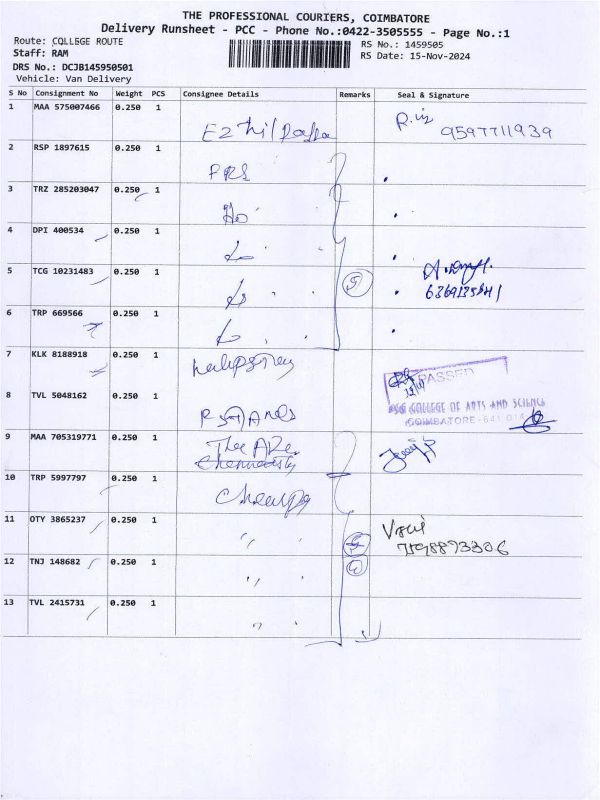 THE PROFESSIONAL COURIERS, COIMBATORE
Delivery Runsheet - PCC - Phone No.:0422-3505555 - Page No.:1
Route: COLLEGE ROUTE
RS No.: 1459505
Staff: RAM
RS Date: 15-Nov-2024
DRS No.: DCJB145950501
Vehicle: Van Delivery
S No Consignment No Weight PCS Consignee Details Remarks Seal & Signature
1 MAA 575007466 0.250 1
9597711939
2 RSP 1897615 0.250 1
PRS
3 TRZ 285203047 0.250 1
4 DPI 400534 0.250 1
5 TCG 10231483 0.250 1
5
6 TRP 669566 0.250 1
7 KLK 8188918 0.250 1
PASSED
8 TVL 5048162 0.250 1
PSG COLLEGE OF ARTS AND SCIENCE
COIMBATORE-641 014
9 MAA 705319771 0.250 1
10 TRP 5997797 0.250 1
11 OTY 3865237 0.250 1
〃
12 TNJ 148682 0.250 1
〃
13 TVL 2415731 0.250 1
〃